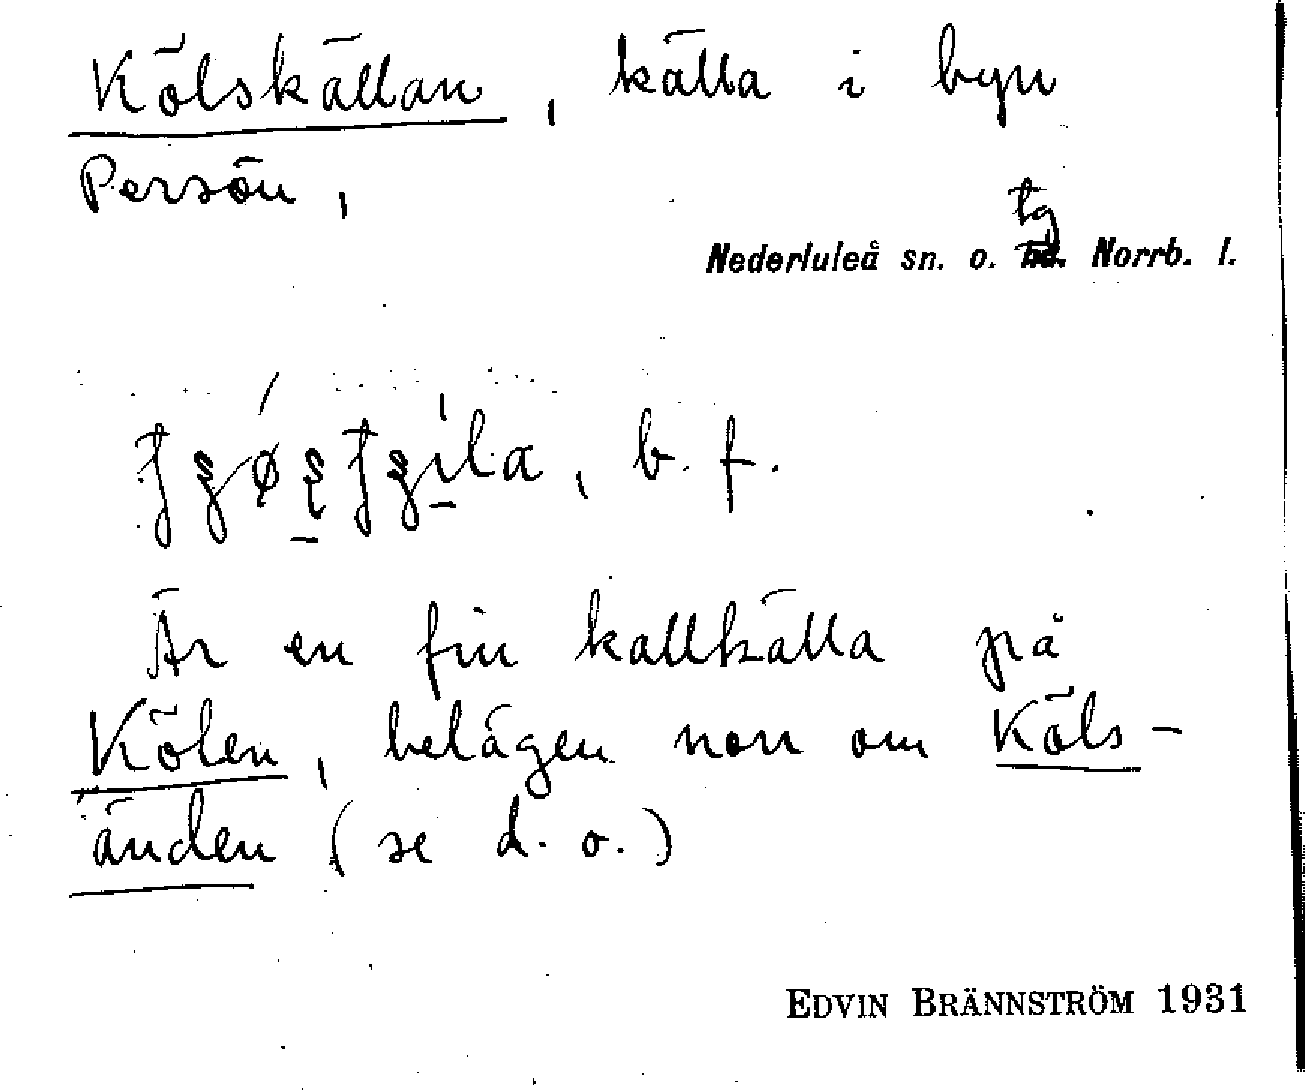 Kölskällan, källa i byn
Persön,
tg
Nederluleå sn. o. Norrb. l.
b. f.
Är en fin kallkälla på
Kölen, belägen norr om Köls-
änden (se d. o.)
EDVIN BRÄNNSTRÖM 1931